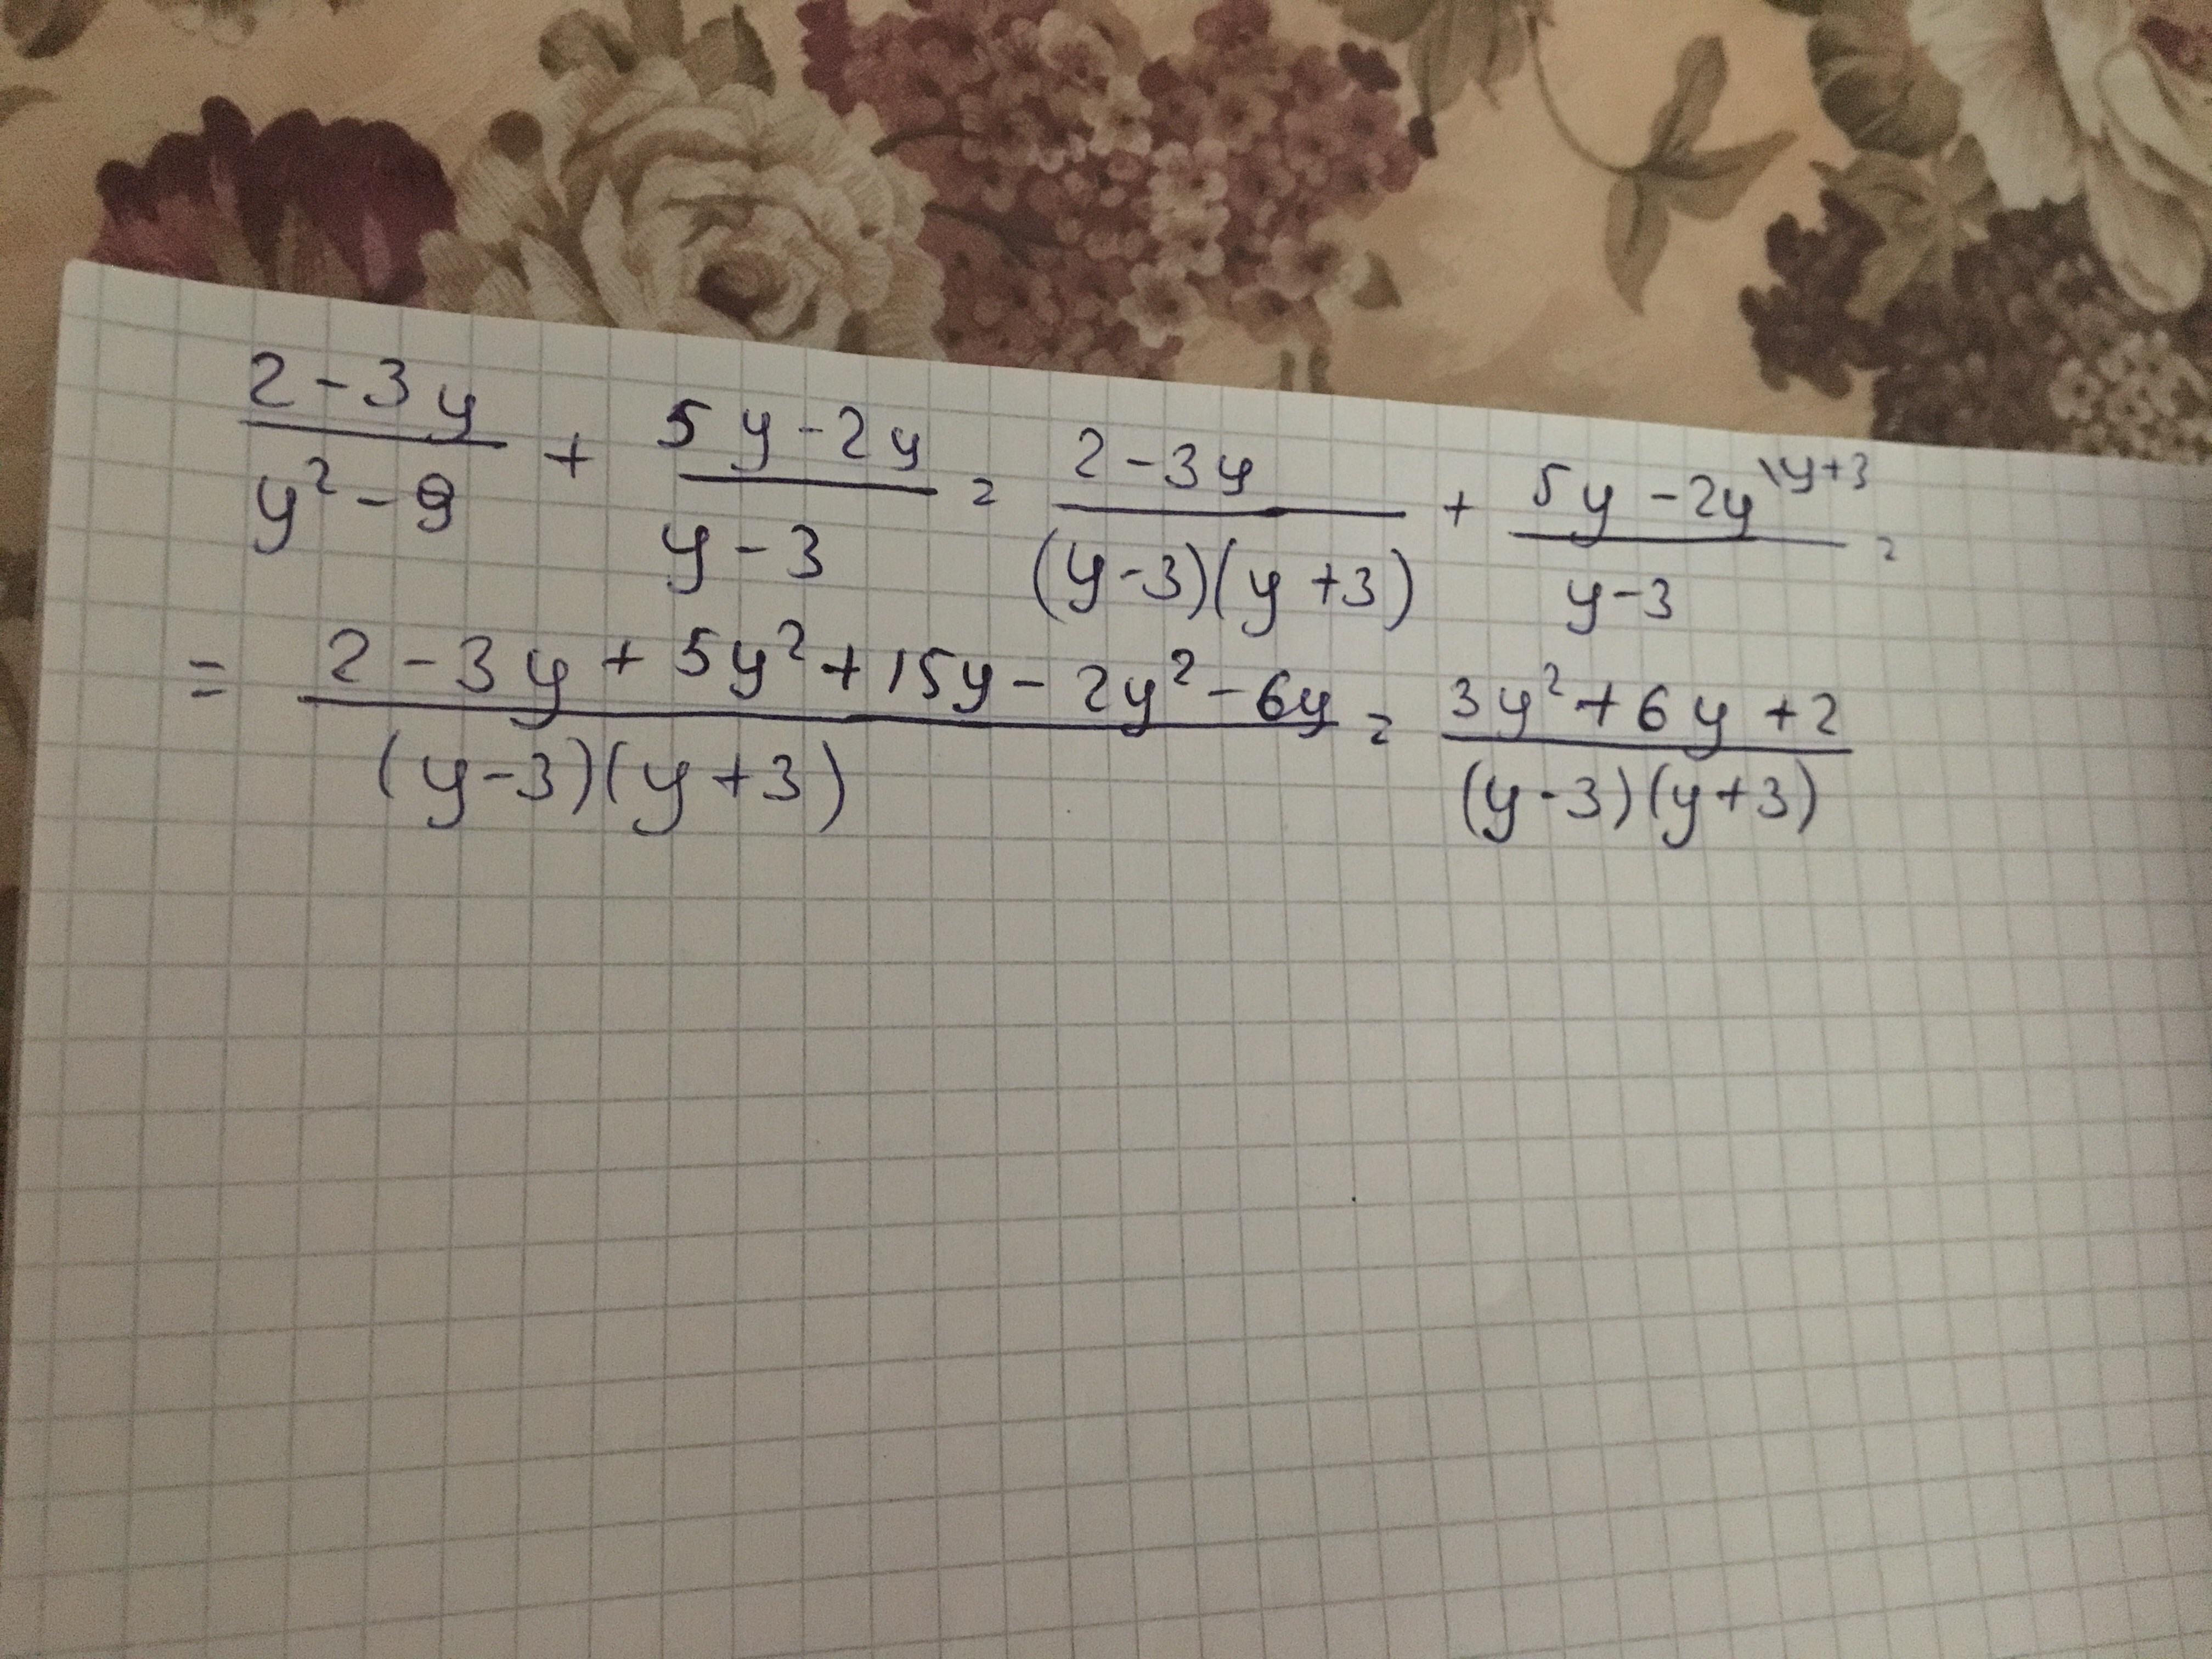 (2-3y)/(y²-9) + (5y-2y)/(y-3) = (2-3y)/((y-3)(y+3)) + (5y-2y\y+3)/(y-3) =
= (2-3y+5y²+15y-2y²-6y)/((y-3)(y+3)) = (3y²+6y+2)/((y-3)(y+3))